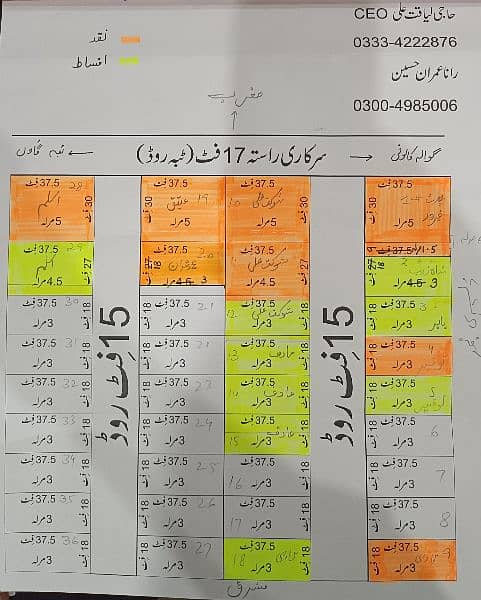 حاجی لیاقت علی CEO
0333-4222876
رانا عمران حسین
0300-4985006
نقد
اقساط
مغرب
گوالہ کالونی
سرکاری راستہ 17 فٹ (ٹبہ روڈ)
ٹبہ گاؤں
37.5 فٹ
30 فٹ
5 مرلہ
37.5 فٹ 10
شوکت علی
30 فٹ
5 مرلہ
37.5 فٹ 19
30 فٹ
5 مرلہ
37.5 فٹ 28
اسلم
30 فٹ
5 مرلہ
37.5 فٹ
3 مرلہ
37.5 فٹ
شوکت علی
4.5 مرلہ
37.5 فٹ 20
3 مرلہ
37.5 فٹ 29
27 فٹ
4.5 مرلہ
15 فٹ روڈ
15 فٹ روڈ
37.5 فٹ 3
18 فٹ
3 مرلہ
37.5 فٹ
شوکت علی 12
18 فٹ
3 مرلہ
37.5 فٹ 21
18 فٹ
3 مرلہ
37.5 فٹ 30
18 فٹ
3 مرلہ
37.5 فٹ 4
18 فٹ
3 مرلہ
37.5 فٹ 13
18 فٹ
3 مرلہ
37.5 فٹ
18 فٹ
3 مرلہ
37.5 فٹ 31
18 فٹ
3 مرلہ
37.5 فٹ 5
18 فٹ
3 مرلہ
37.5 فٹ 14
18 فٹ
3 مرلہ
37.5 فٹ 23
18 فٹ
3 مرلہ
37.5 فٹ 32
18 فٹ
3 مرلہ
37.5 فٹ 6
18 فٹ
3 مرلہ
37.5 فٹ 15
18 فٹ
3 مرلہ
37.5 فٹ 24
18 فٹ
3 مرلہ
37.5 فٹ 33
18 فٹ
3 مرلہ
37.5 فٹ 7
18 فٹ
3 مرلہ
37.5 فٹ 16
18 فٹ
3 مرلہ
37.5 فٹ 25
18 فٹ
3 مرلہ
37.5 فٹ 34
18 فٹ
3 مرلہ
37.5 فٹ 8
18 فٹ
3 مرلہ
37.5 فٹ 17
18 فٹ
3 مرلہ
37.5 فٹ 26
18 فٹ
3 مرلہ
37.5 فٹ 35
18 فٹ
3 مرلہ
37.5 فٹ 9
18 فٹ
3 مرلہ
37.5 فٹ 18
18 فٹ
3 مرلہ
37.5 فٹ 27
18 فٹ
3 مرلہ
37.5 فٹ 36
18 فٹ
3 مرلہ
مشرق